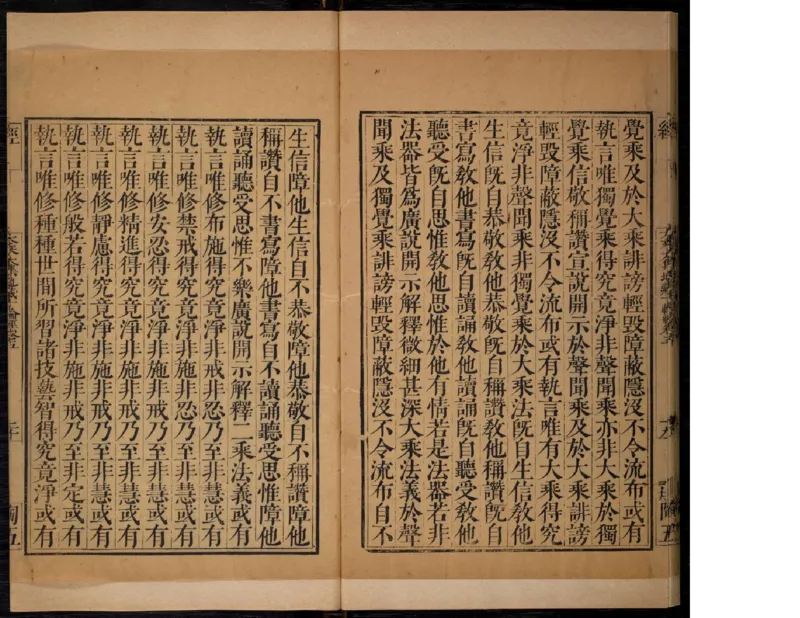 覺乘及於大乘誹謗輕毀障蔽隱沒不令流布或有
執言唯獨覺乘得究竟淨非聲聞乘亦非大乘於獨
覺乘信敬稱讚宣說開示於聲聞乘及於大乘誹謗
輕毀障蔽隱沒不令流布或有執言唯有大乘得究
竟淨非聲聞乘非獨覺乘於大乘法旣自生信教他
生信旣自恭敬教他恭敬旣自稱讚教他稱讚旣自
書寫教他書寫旣自讀誦教他讀誦旣自聽受教他
聽受旣自思惟教他思惟於他有情若是法器若非
法器皆爲廣說開示解釋微細甚深大乘法義於聲
聞乘及獨覺乘誹謗輕毀障蔽隱沒不令流布自不
生信障他生信自不恭敬障他恭敬自不稱讚障他
稱讚自不書寫障他書寫自不讀誦聽受思惟障他
讀誦聽受思惟不樂廣說開示解釋二乘法義或有
執言唯修布施得究竟淨非戒非忍乃至非慧或有
執言唯修禁戒得究竟淨非施非忍乃至非慧或有
執言唯修安忍得究竟淨非施非戒乃至非慧或有
執言唯修精進得究竟淨非施非戒乃至非慧或有
執言唯修靜慮得究竟淨非施非戒乃至非慧或有
執言唯修般若得究竟淨非施非戒乃至非定或有
執言唯修種種世間所習諸技藝智得究竟淨或有